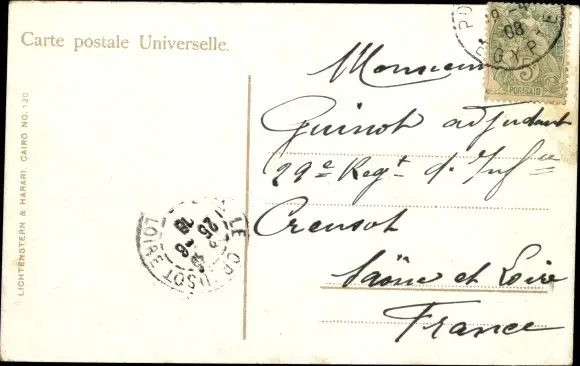 Carte postale Universelle.
LICHTENSTERN & HARARI, CAIRO NO. 120
PORT-SAID
08
EGYPTE
Monsieur
Guinot adjudant
29e Regt d'Infie
Creusot
Saône et Loire
France
LE CREUSOT
25
08